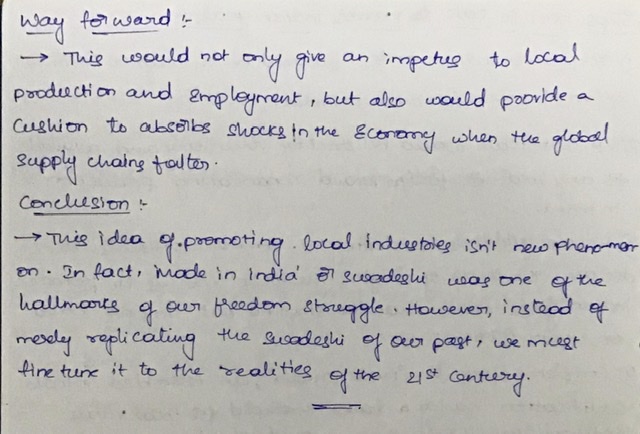 Way forward :-
→ This would not only give an impetus to local
production and employment, but also would provide a
cushion to absorbs shocks in the Economy when the global
supply chains falter.
Conclusion :-
→ This idea of promoting local industries isn't new phenomen
on. In fact, 'made in india' or swadeshi was one of the
hallmarks of our freedom struggle. However, instead of
merely replicating the swadeshi of our past, we must
fine tune it to the realities of the 21st century.